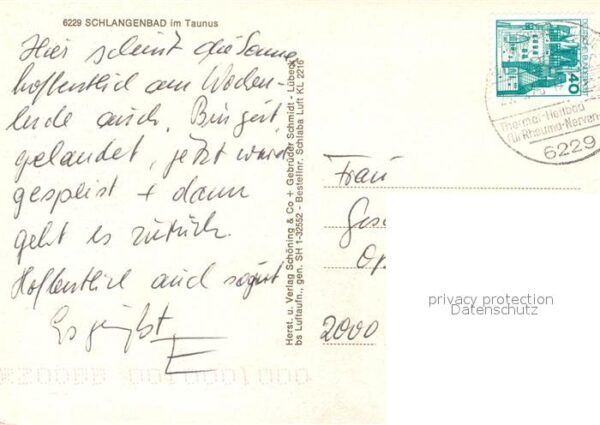 6229 SCHLANGENBAD im Taunus
Hier scheint die Sonne
hoffentlich am Wochen-
ende auch. Bin gut
gelandet, jetzt wird
gespeist + dann
geht es zurück.
Hoffentlich auch so gut
Es grüßt
E
Herst. u. Verlag Schöning & Co + Gebrüder Schmidt - Lübeck
bs Luftaufn., gen. SH 1-32552 - Bestellnr. Schlaba Luft KL 2216
DEUTSCHE BUNDESPOST
40
Thermal-Heilbad
für Rheuma-Nerven
6229
Frau
2000
privacy protection
Datenschutz